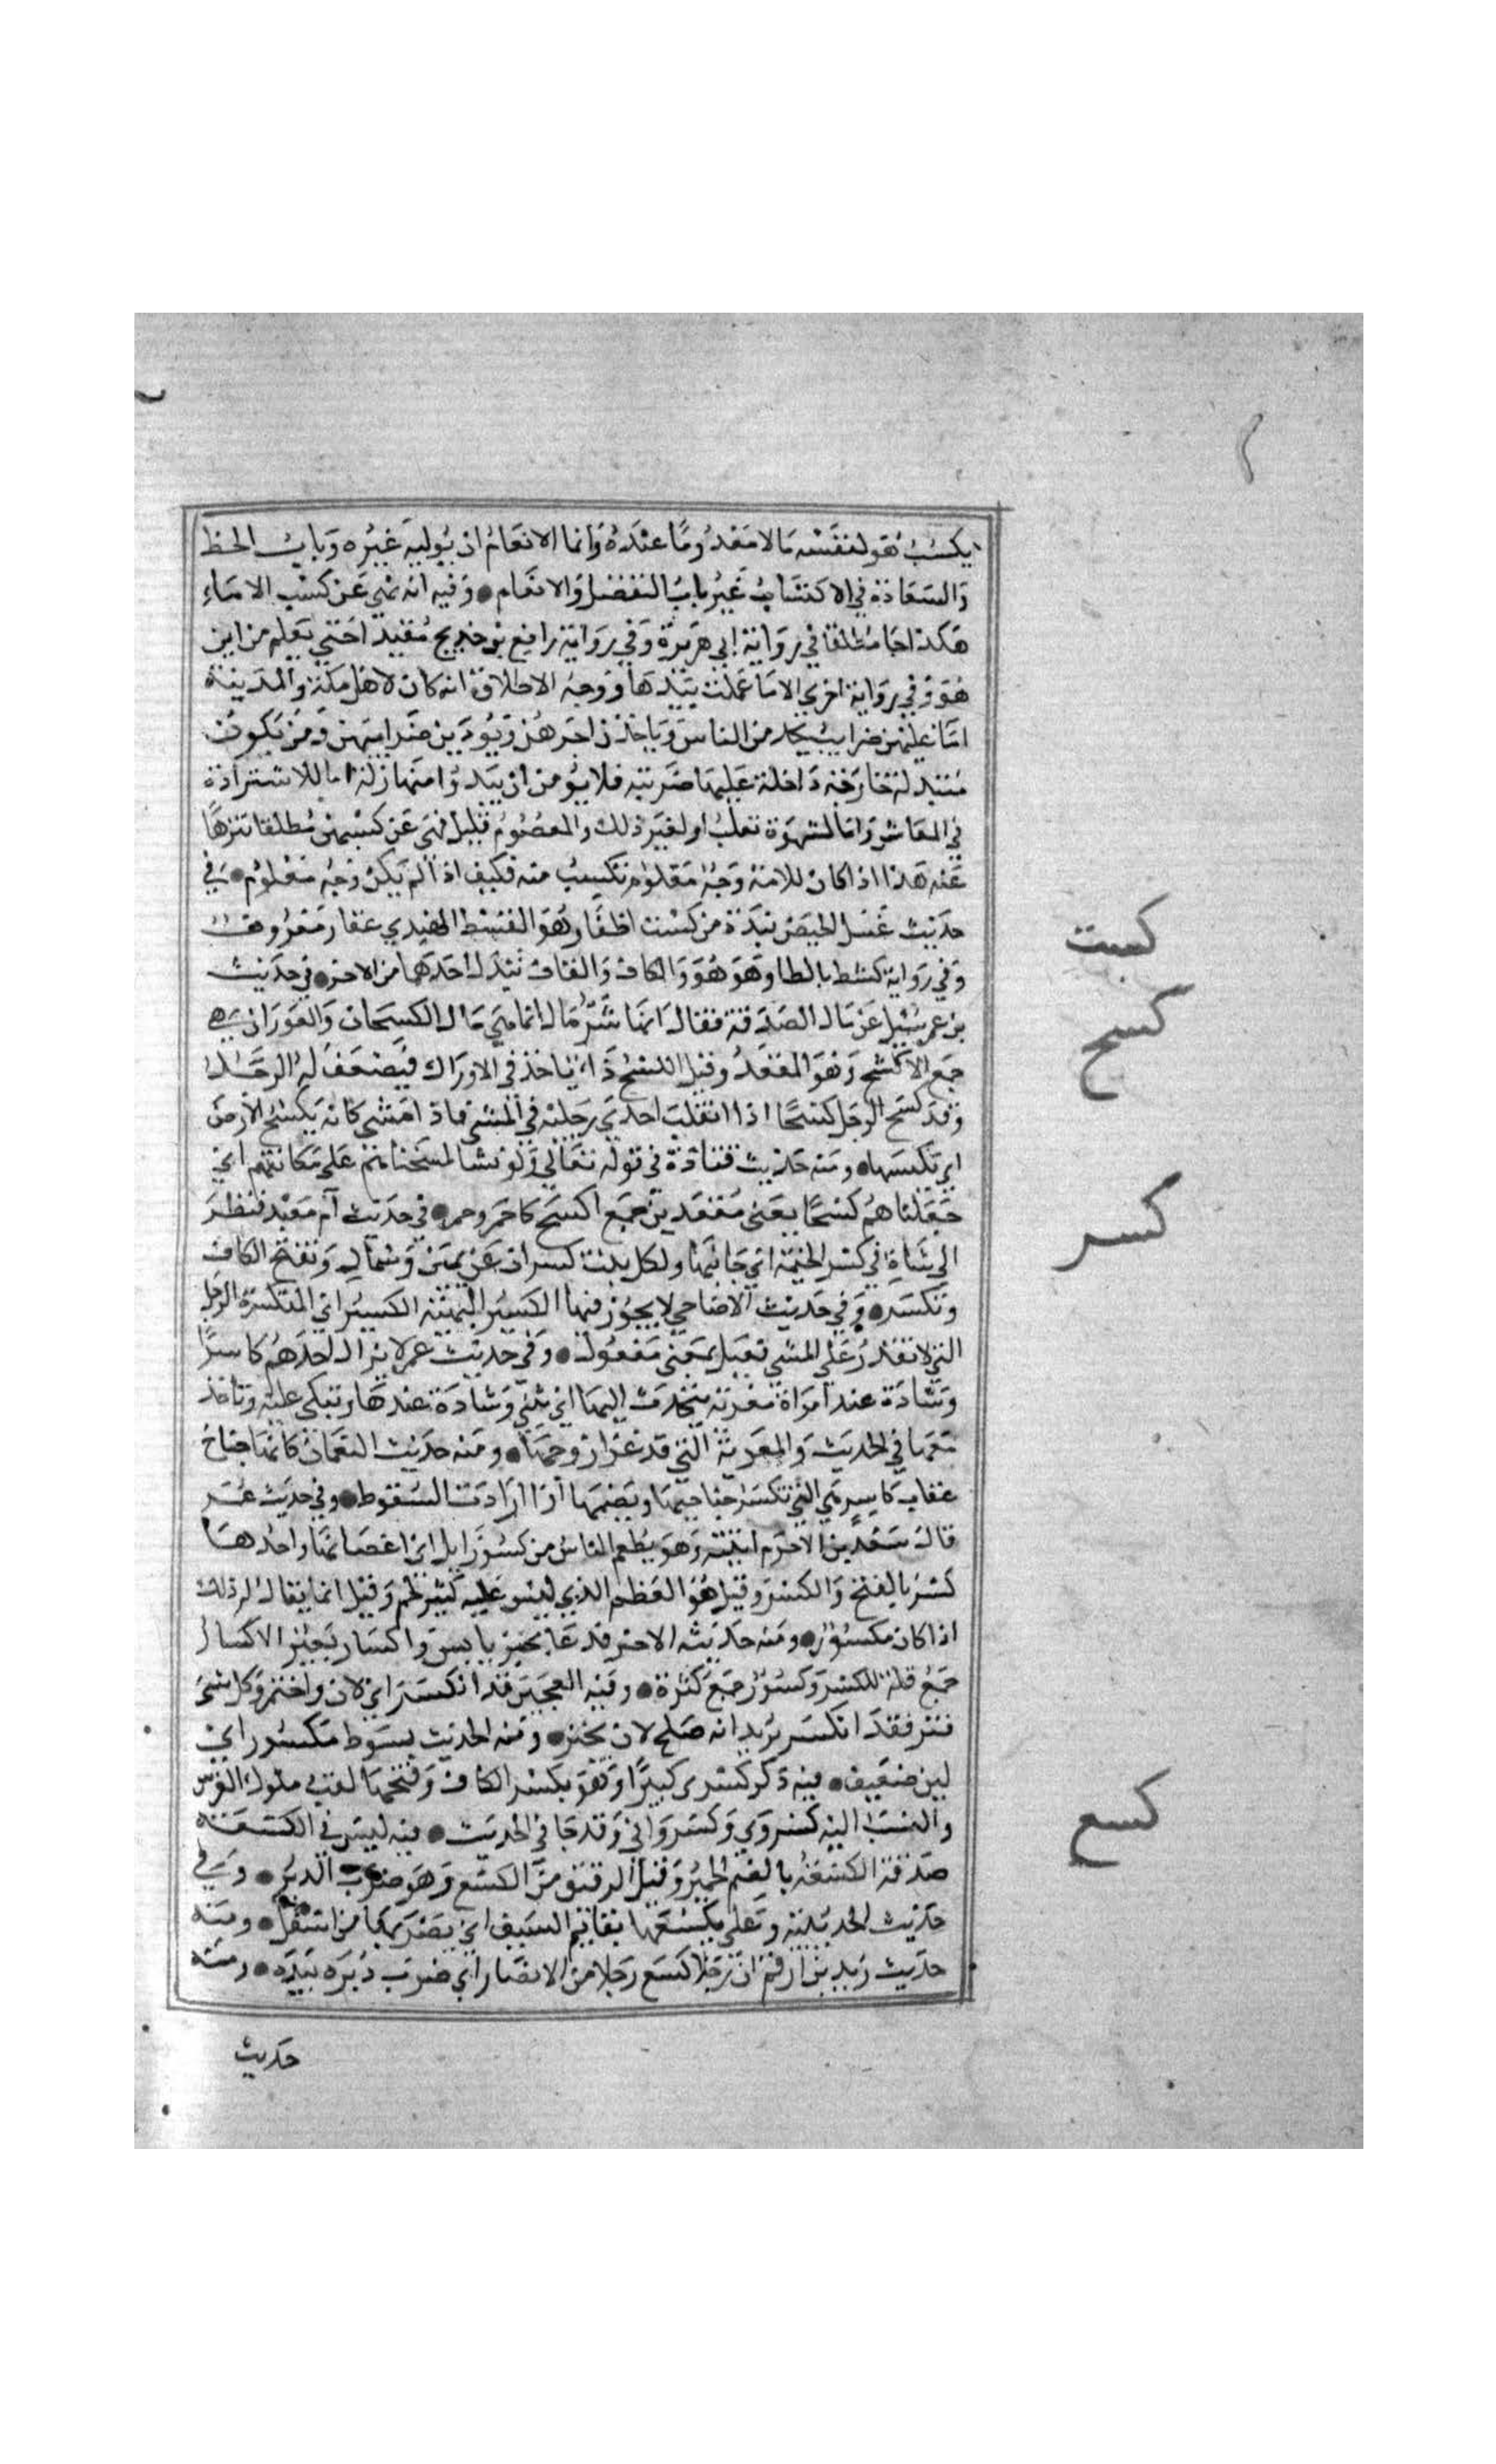 يكسب هو لنفسه مالا معدوما عنده وانما الانعام ان يوليه غيره وباب الحظ
والسعادة في الاكتساب غير باب التفضل والانعام • وفيه انه نهي عن كسب الاماء
هكذا جا مطلقا في رواية ابي هريرة وفي رواية رافع بن خديج مقيدا حتي يعلم من اين
هو وفي رواية اخري الا ما عملت بيدها ووجه الاطلاق انه كان لاهل مكة والمدينة
اما عليهن ضرايب يخد من الناس وياخذن اجرهن ويؤدين ضرايبهن ومن تكون
متبدلة خارجة داخلة عليها ضريبة فلا يؤمن ان يبدوا منها زلة اما للاستزادة
في المعاش واما لشهوة تغلب او لغير ذلك والمعصوم قليل فنهي عن كسبهن مطلقا تنزها
عنه هذا اذا كان للامة وجه معلوم تكسب منه فكيف اذا لم يكن وجه معلوم • في
حديث غسل الحيض نبذة من كست اظفار وهو القسط الهندي عقار معروف
وفي رواية كسط بالطا وهو هو والكاف والقاف تبدل احدهما من الاخر • في حديث
بن عمر سئل عن مال الصدقة فقال انها شر مال انما هي مال الكسحان والعوران هي
جمع الاكسح وهو المقعد وقيل الكسح داء ياخذ في الاوراك فيضعف له الرجل
وقد كسح الرجل كسحا اذا اثقلت احدي رجليه في المشي فاذا مشي كانه يكسح الارض
اي يكنسها • ومنه حديث قتادة في قوله تعالي ولو نشا لمسخناهم علي مكانتهم اي
جعلناهم كسحا يعني مقعدين جمع اكسح كاحمر وحمر • في حديث ام معبد فنظر
الي شاة في كسر الخيمة اي جانبها ولكل بيت كسران عن يمين وشمال وتفتح الكاف
وتكسر • وفي حديث الاضاحي لا يجوز فيها الكسير البينة الكسر اي المنكسرة الرجل
التي لا تقدر علي المشي فعيل بمعني مفعول • وفي حديث عمر لا يزال احدهم كاسرا
وسادة عند امراة مغزية يتحدث اليها اي يثني وسادة عندها ويتكي عليه وياخذ
معها في الحديث والمغزية التي قد غزا زوجها • ومنه حديث النعمان كانها جناح
عقاب كاسر هي التي تكسر جناحيها وتضمهما اذا ارادت السقوط • وفي حديث عمر
قال سعد بن الاخرم اتيته وهو يطعم الناس من كسور ابل اي اعضائها واحدها
كسر بالفتح والكسر وقيل هو العظم الذي ليس عليه كثير لحم وقيل انما يقال له ذلك
اذا كان مكسورا • ومنه حديثه الاخر فدعا بخبز يابس واكسار بعير الاكسار
جمع قلة للكسر وكسور جمع كثرة • وفيه العجين قد انكسر اي لان واختمر وكل شي
فتر فقد انكسر يريد انه صلح لان يخبز • ومنه الحديث بسوط مكسور اي
لين ضعيف • فيه ذكر كسري كثيرا وهو بكسر الكاف وفتحها لقب ملوك الفرس
والنسب اليه كسروي وكسرواني وقد جا في الحديث • فيه ليس في الكسعة
صدقة الكسعة بالضم الحمير وقيل الرقيق من الكسع وهو ضرب الدبر • وفي
حديث الحديبية وعلي يكسعها بقايم السيف اي يضربها من اسفل • ومنه
حديث زيد بن ارقم ان رجلا كسع رجلا من الانصار اي ضرب دبره بيده • ومنه
حديث
كست
كسح
كسر
كسع